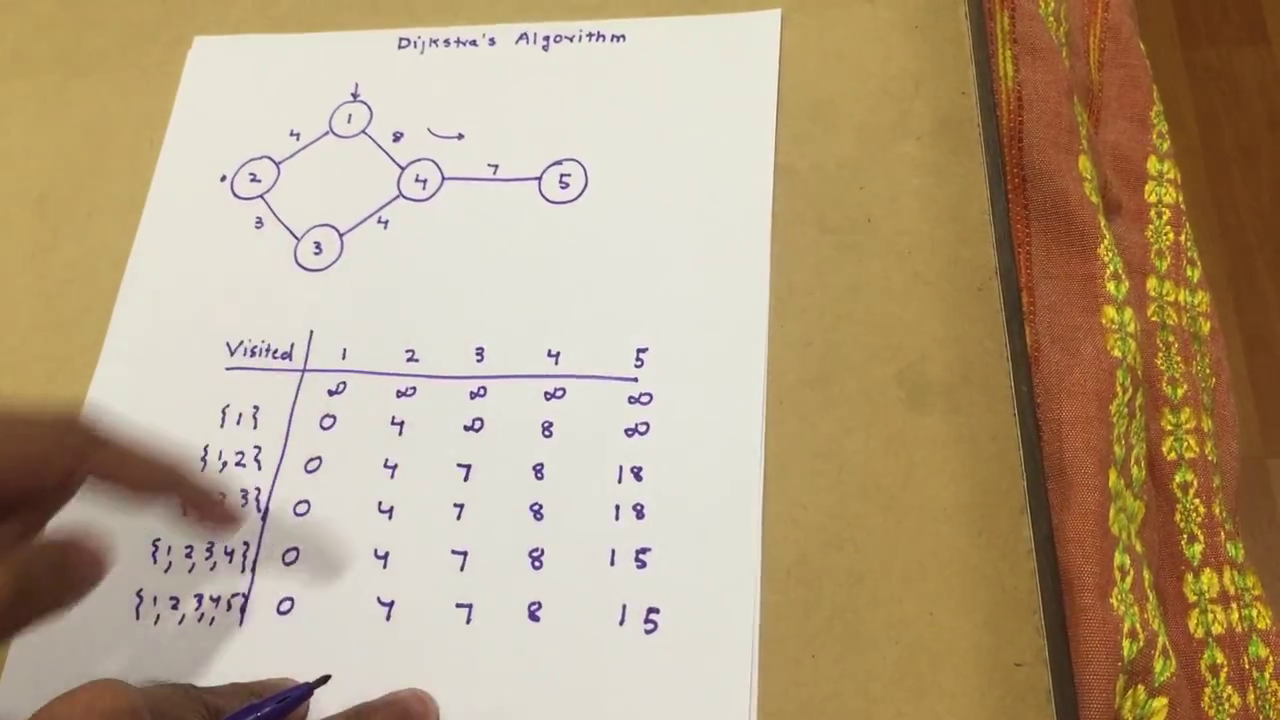 Dijkstra's Algorithm
1
4 8
2 4 7 5
3 4
3
Visited 1 2 3 4 5
∞ ∞ ∞ ∞ ∞
{1} 0 4 ∞ 8 ∞
{1,2} 0 4 7 8 18
3} 0 4 7 8 18
{1,2,3,4} 0 4 7 8 15
{1,2,3,4,5} 0 4 7 8 15